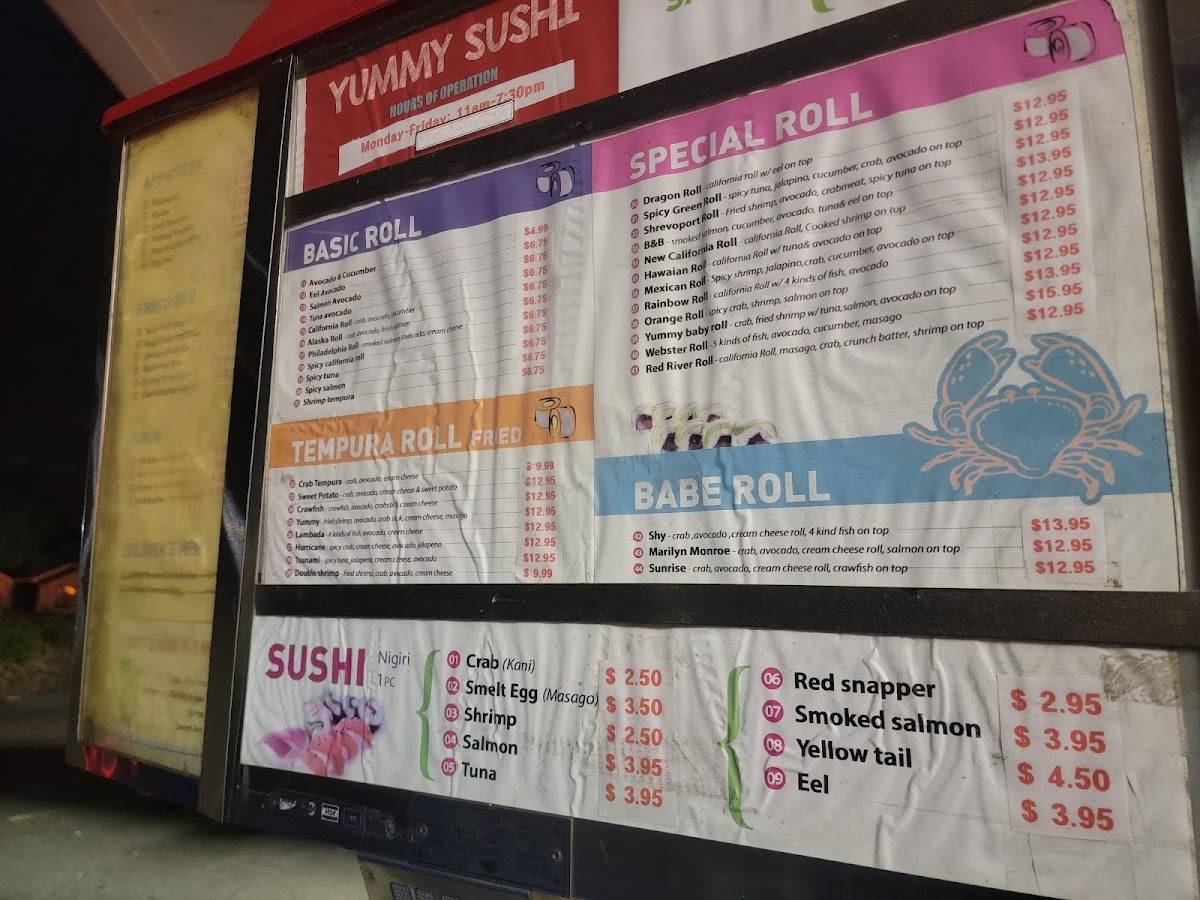 YUMMY SUSHI
HOURS OF OPERATION
Monday-Friday: 11am-7:30pm
BASIC ROLL
11 Avocado & Cucumber $4.99
12 Eel Avocado $6.75
13 Salmon Avocado $6.75
14 Tuna avocado $6.75
15 California Roll - crab, avocado, cucumber $6.75
16 Alaska Roll - crab, avocado, fresh salmon $6.75
17 Philadelphia Roll - smoked salmon, avocado, cream cheese $6.75
18 Spicy california roll $6.75
19 Spicy tuna $6.75
20 Spicy salmon $6.75
21 Shrimp tempura $6.75
TEMPURA ROLL FRIED
22 Crab Tempura - crab, avocado, cream cheese $ 9.99
23 Sweet Potato - crab, avocado, cream cheese & sweet potato $12.95
24 Crawfish - crawfish, avocado, crabstick, cream cheese $12.95
25 Yummy - fried shrimp, avocado, crab stick, cream cheese, masago $12.95
26 Lambada - 4 kinds of fish, avocado, cream cheese $12.95
27 Hurricane - spicy crab, cream cheese, avocado, jalapeno $12.95
28 Tsunami - spicy tuna, jalapeno, cream cheese, avocado $12.95
29 Double shrimp - fried shrimp, crab, avocado, cream cheese $ 9.99
SPECIAL ROLL
30 Dragon Roll - california roll w/ eel on top $12.95
31 Spicy Green Roll - spicy tuna, jalapino, cucumber, crab, avocado on top $12.95
32 Shrevoport Roll - Fried shrimp, avocado, crabmeat, spicy tuna on top $12.95
33 B&B - smoked salmon, cucumber, avocado, tuna& eel on top $13.95
34 New California Roll - california Roll, Cooked shrimp on top $12.95
35 Hawaiian Roll - california Roll w/ tuna& avocado on top $12.95
36 Mexican Roll - Spicy shrimp, jalapino,crab, cucumber, avocado on top $12.95
37 Rainbow Roll - california Roll w/ 4 kinds of fish, avocado $12.95
38 Orange Roll - spicy crab, shrimp, salmon on top $12.95
39 Yummy baby roll - crab, fried shrimp w/ tuna,salmon, avocado on top $13.95
40 Webster Roll - 5 kinds of fish, avocado, cucumber, masago $15.95
41 Red River Roll - california Roll, masago, crab, crunch batter, shrimp on top $12.95
BABE ROLL
42 Shy - crab ,avocado ,cream cheese roll, 4 kind fish on top $13.95
43 Marilyn Monroe - crab, avocado, cream cheese roll, salmon on top $12.95
44 Sunrise - crab, avocado, cream cheese roll, crawfish on top $12.95
SUSHI Nigiri
1PC
01 Crab (Kani) $ 2.50
02 Smelt Egg (Masago) $ 3.50
03 Shrimp $ 2.50
04 Salmon $ 3.95
05 Tuna $ 3.95
06 Red snapper $ 2.95
07 Smoked salmon $ 3.95
08 Yellow tail $ 4.50
09 Eel $ 3.95
APPETIZER
FRIED RICE
VISA